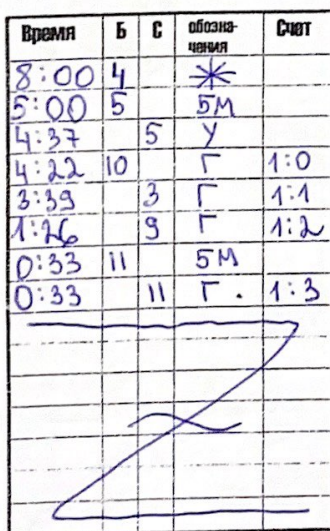 Время Б С обозна-чения Счет
8:00 4 ж
5:00 5 5М
4:37 5 У
4:22 10 Г 1:0
3:39 3 Г 1:1
1:26 9 Г 1:2
0:33 11 5М
0:33 11 Г. 1:3